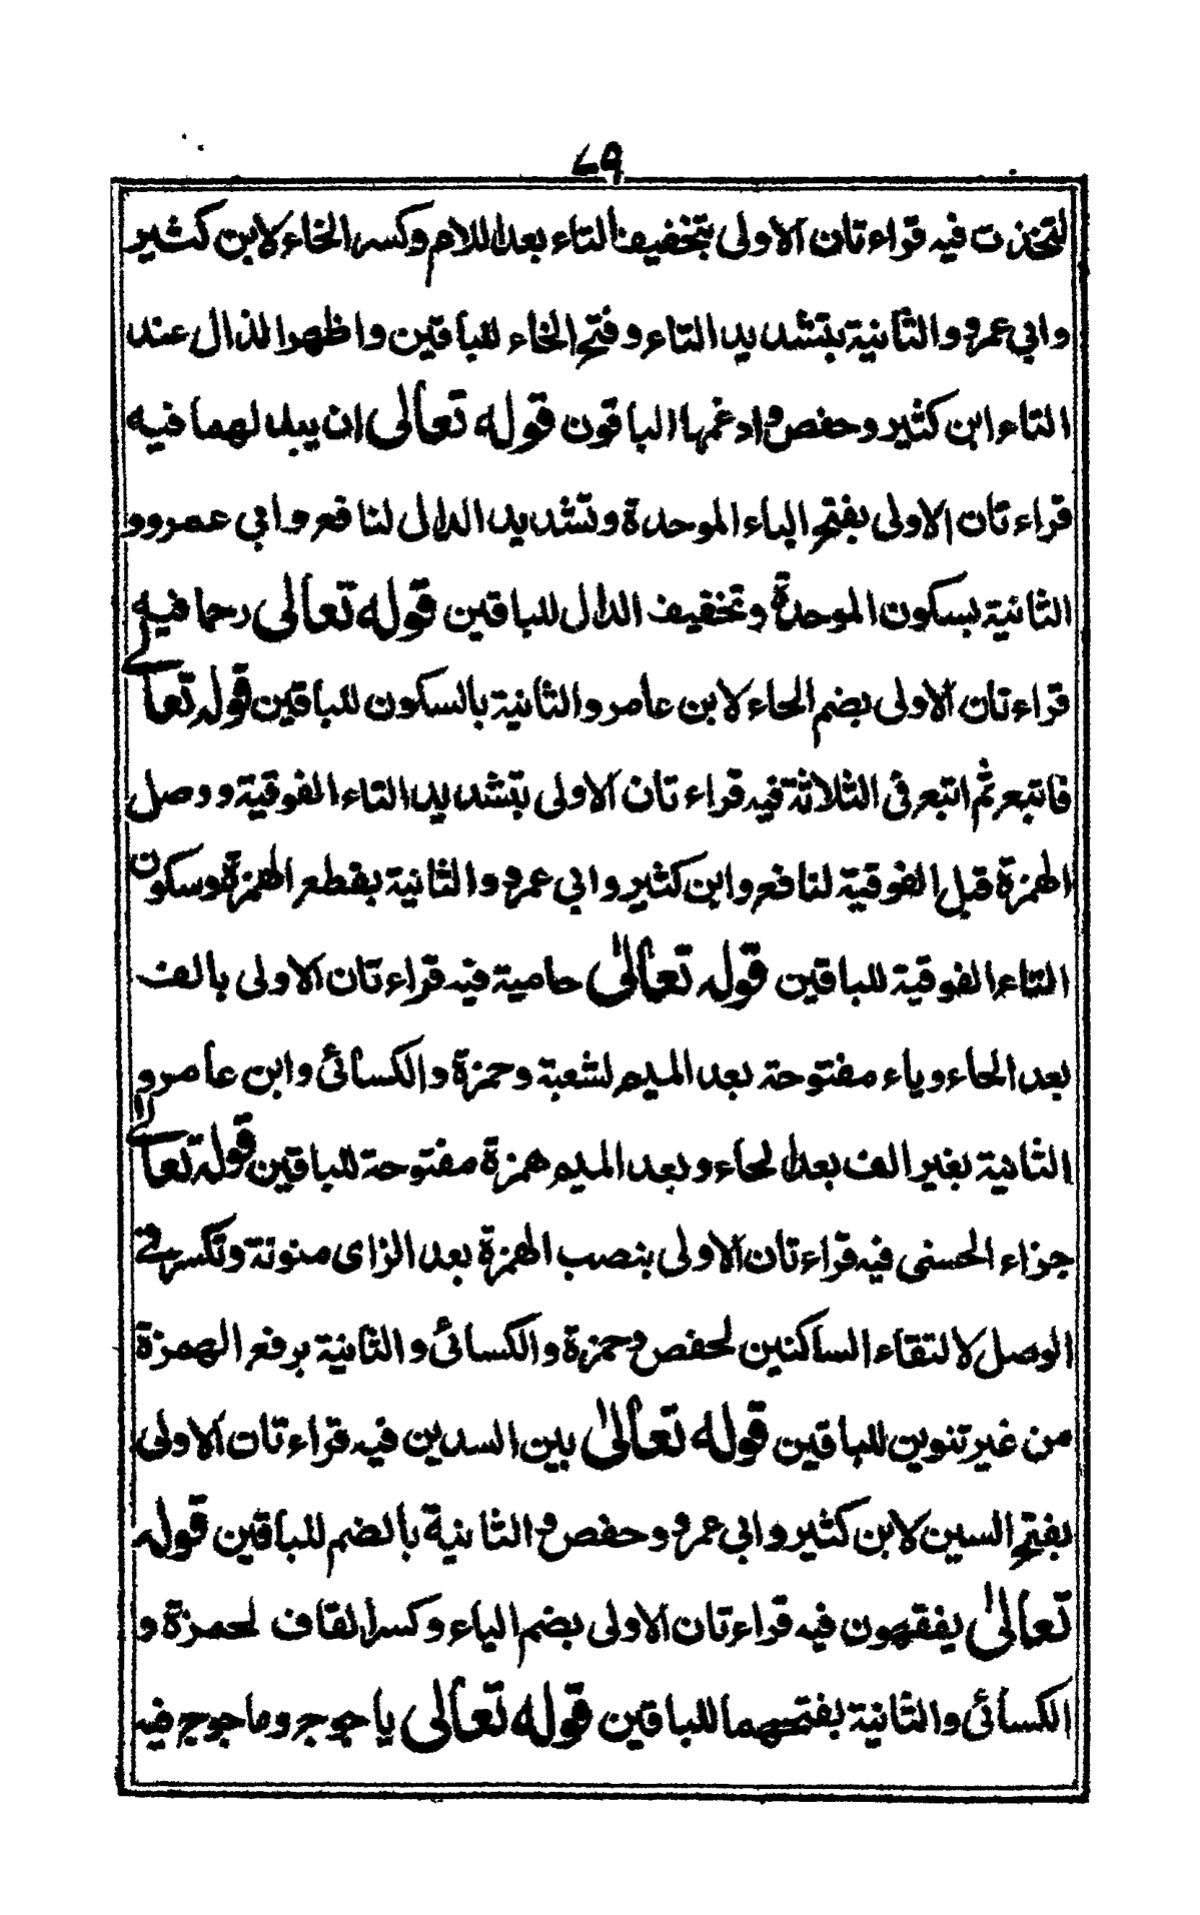 ٧٩
لتخذت فيه قراءتان الاولى بتخفيف التاء بعد اللام وكسر الخاء لابن كثير
وابي عمرو والثانية بتشديد التاء وفتح الخاء للباقين واظهر الذال عند
التاء ابن كثير وحفص وادغمها الباقون قوله تعالى ان يبدلهما فيه
قراءتان الاولى بفتح الباء الموحدة وتشديد الدال لنافع وابي عمرو و
الثانية بسكون الموحدة وتخفيف الدال للباقين قوله تعالى رحما فيه
قراءتان الاولى بضم الحاء لابن عامر والثانية بالسكون للباقين قوله تعالى
فاتبع ثم اتبع فى الثلاثة فيه قراءتان الاولى بتشديد التاء الفوقية ووصل
الهمزة قبل الفوقية لنافع وابن كثير وابي عمرو والثانية بقطع الهمزة وسكون
التاء الفوقية للباقين قوله تعالىٰ حامية فيه قراءتان الاولى بالف
بعد الحاء وياء مفتوحة بعد الميم لشعبة وحمزة والكسائى وابن عامر و
الثانية بغير الف بعد الحاء وبعد الميم همزة مفتوحة للباقين قوله تعالىٰ
جزاء الحسنى فيه قراءتان الاولى بنصب الهمزة بعد الزاى منونة وتكسر فى
الوصل لالتقاء الساكنين لحفص وحمزة والكسائى والثانية برفع الهمزة
من غير تنوين للباقين قوله تعالىٰ بين السدين فيه قراءتان الاولى
بفتح السين لابن كثير وابي عمرو وحفص والثانية بالضم للباقين قوله
تعالىٰ يفقهون فيه قراءتان الاولى بضم الياء وكسر القاف لحمزة و
الكسائى والثانية بفتحهما للباقين قوله تعالى ياجوج وماجوج فيه